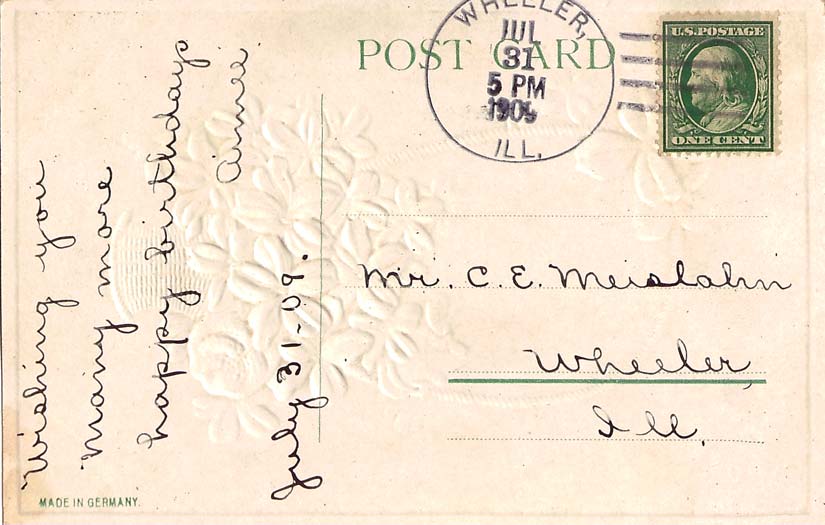 POST CARD
WHEELER,
JUL
31
5 PM
1909
ILL.
U.S. POSTAGE
ONE CENT
Wishing you
many more
happy birthdays
Aimee
July 31-09.
Mr. C. E. Meislahn
Wheeler,
Ill.
MADE IN GERMANY.